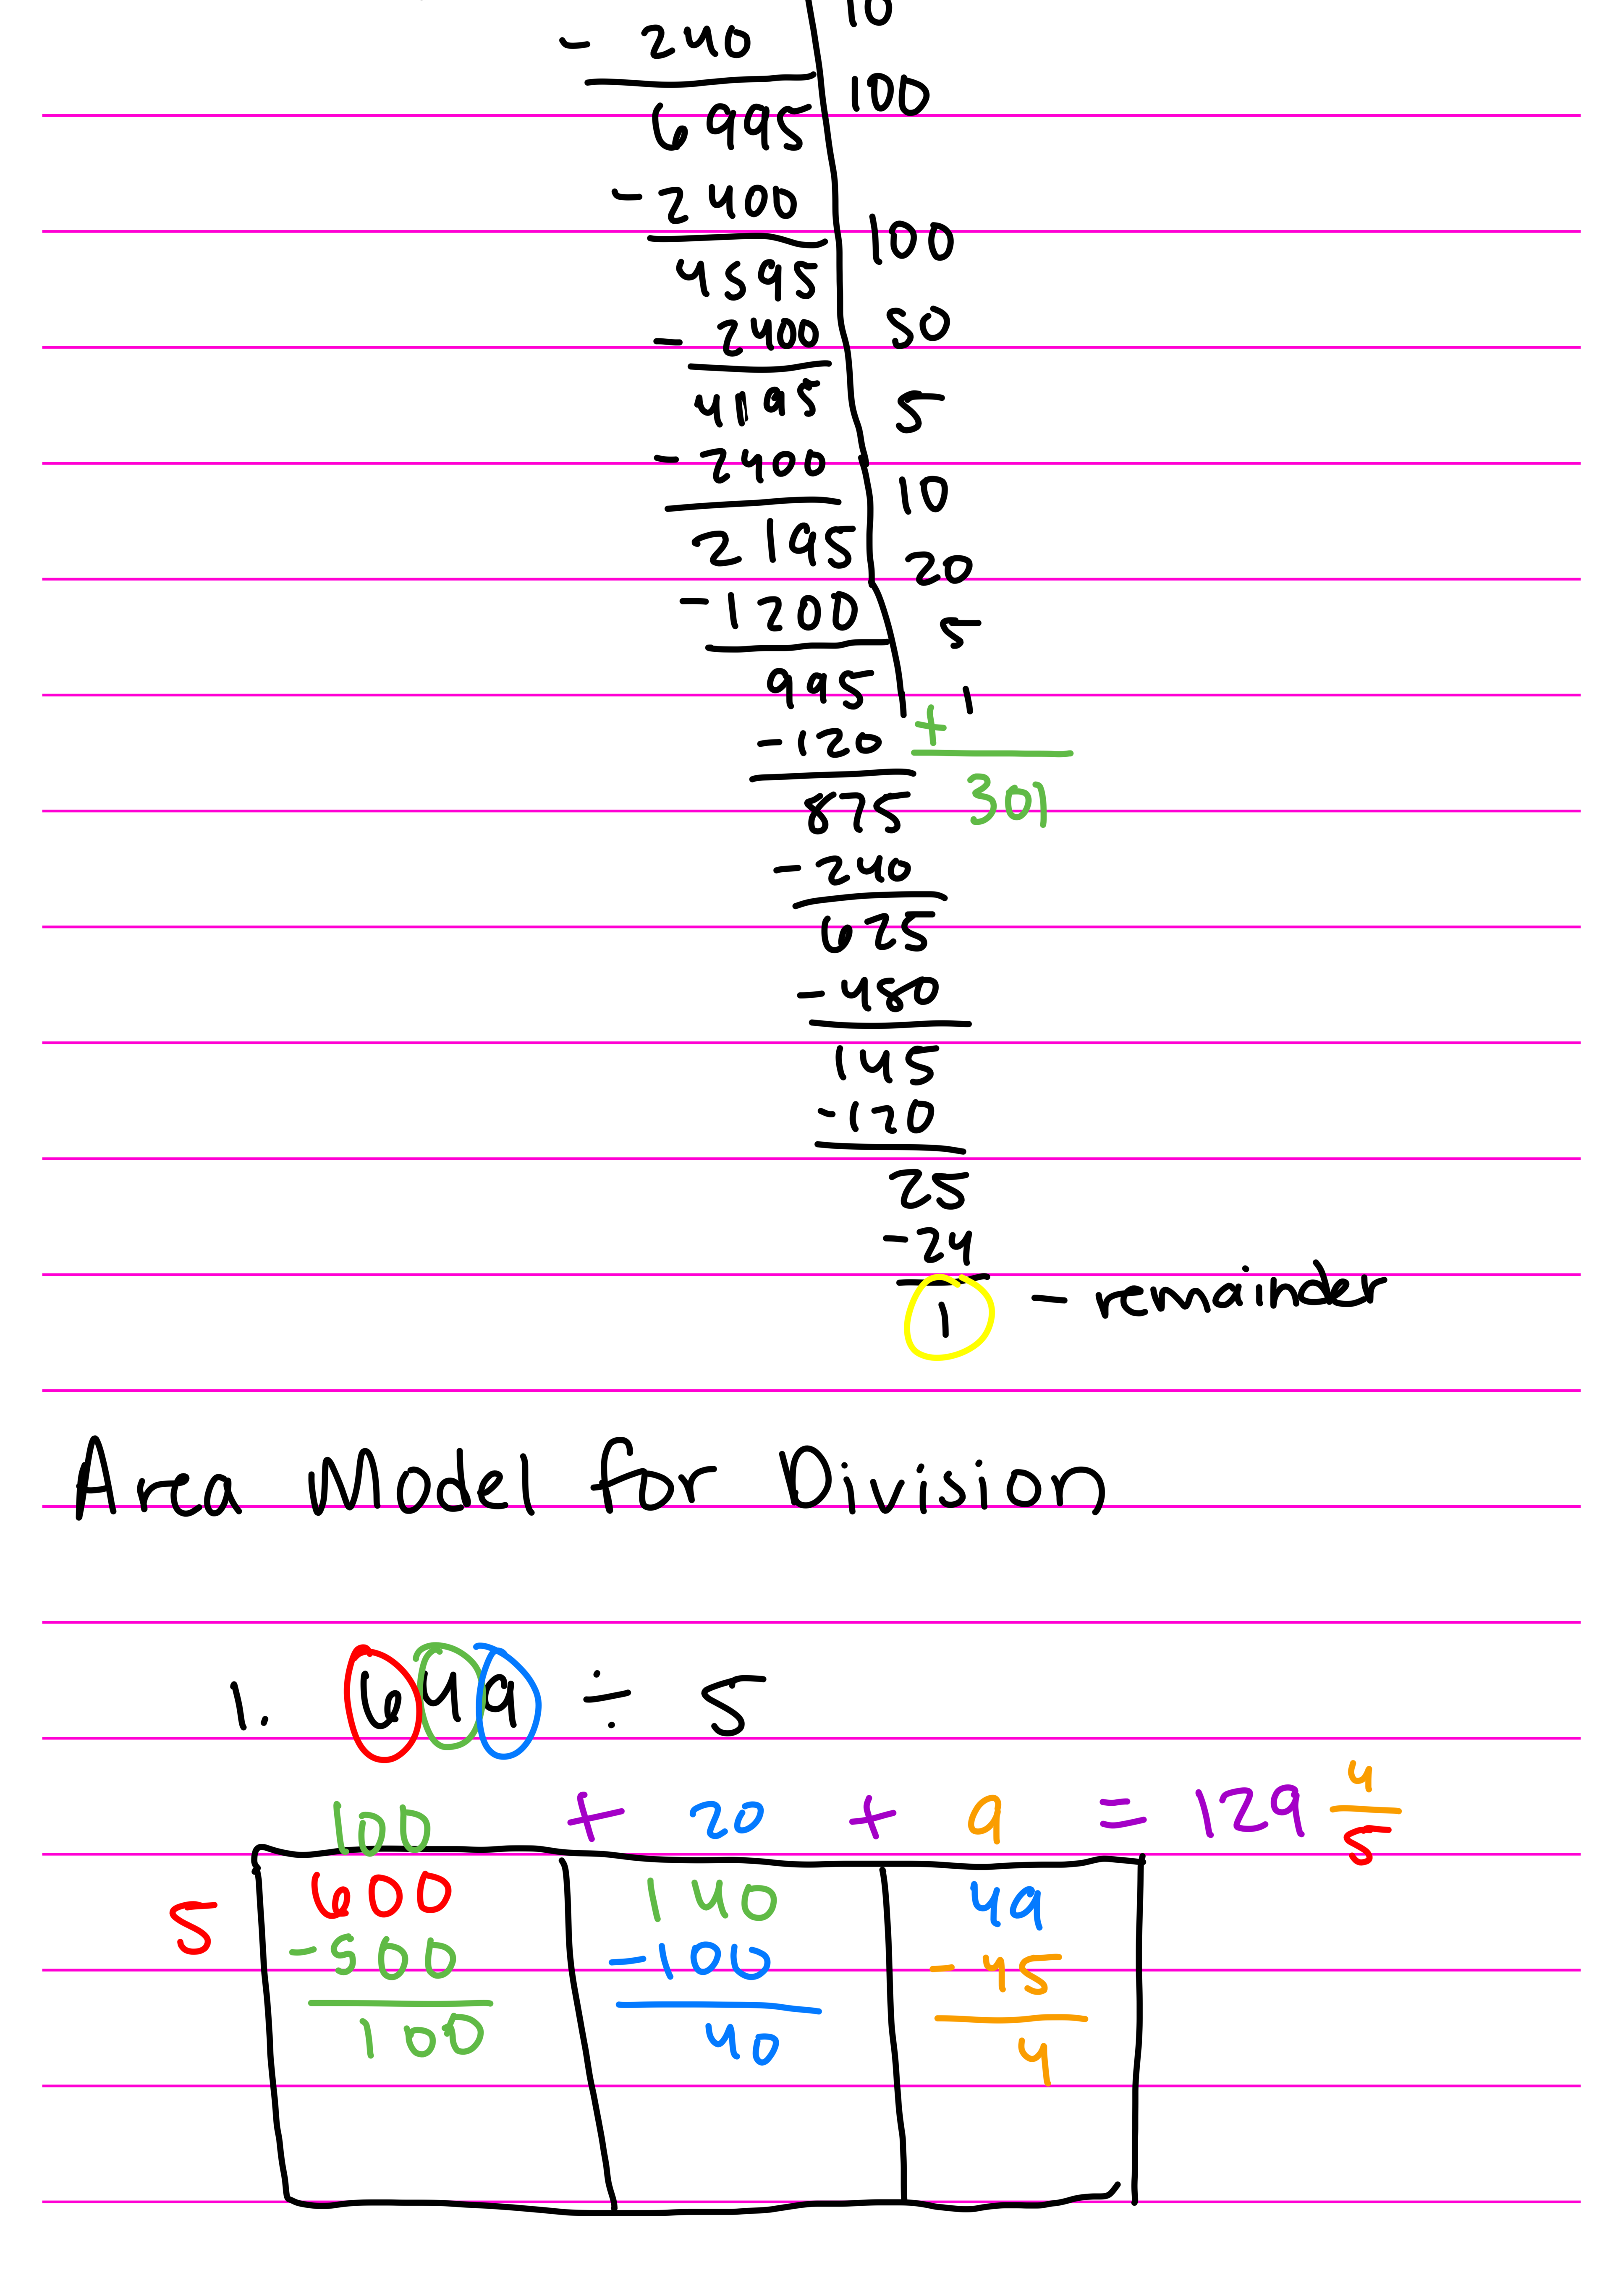 10
- 240
100
6995
- 2400
100
4595
- 2400
50
4195
5
- 2400
10
2195
20
- 1200
5
995
1
- 120
+
875
301
- 240
625
- 480
145
- 120
25
- 24
1 - remainder
Area Model for Division
1. 649 ÷ 5
100 + 20 + 9 = 129 4/5
5
600
140
49
- 500
- 100
- 45
100
40
4